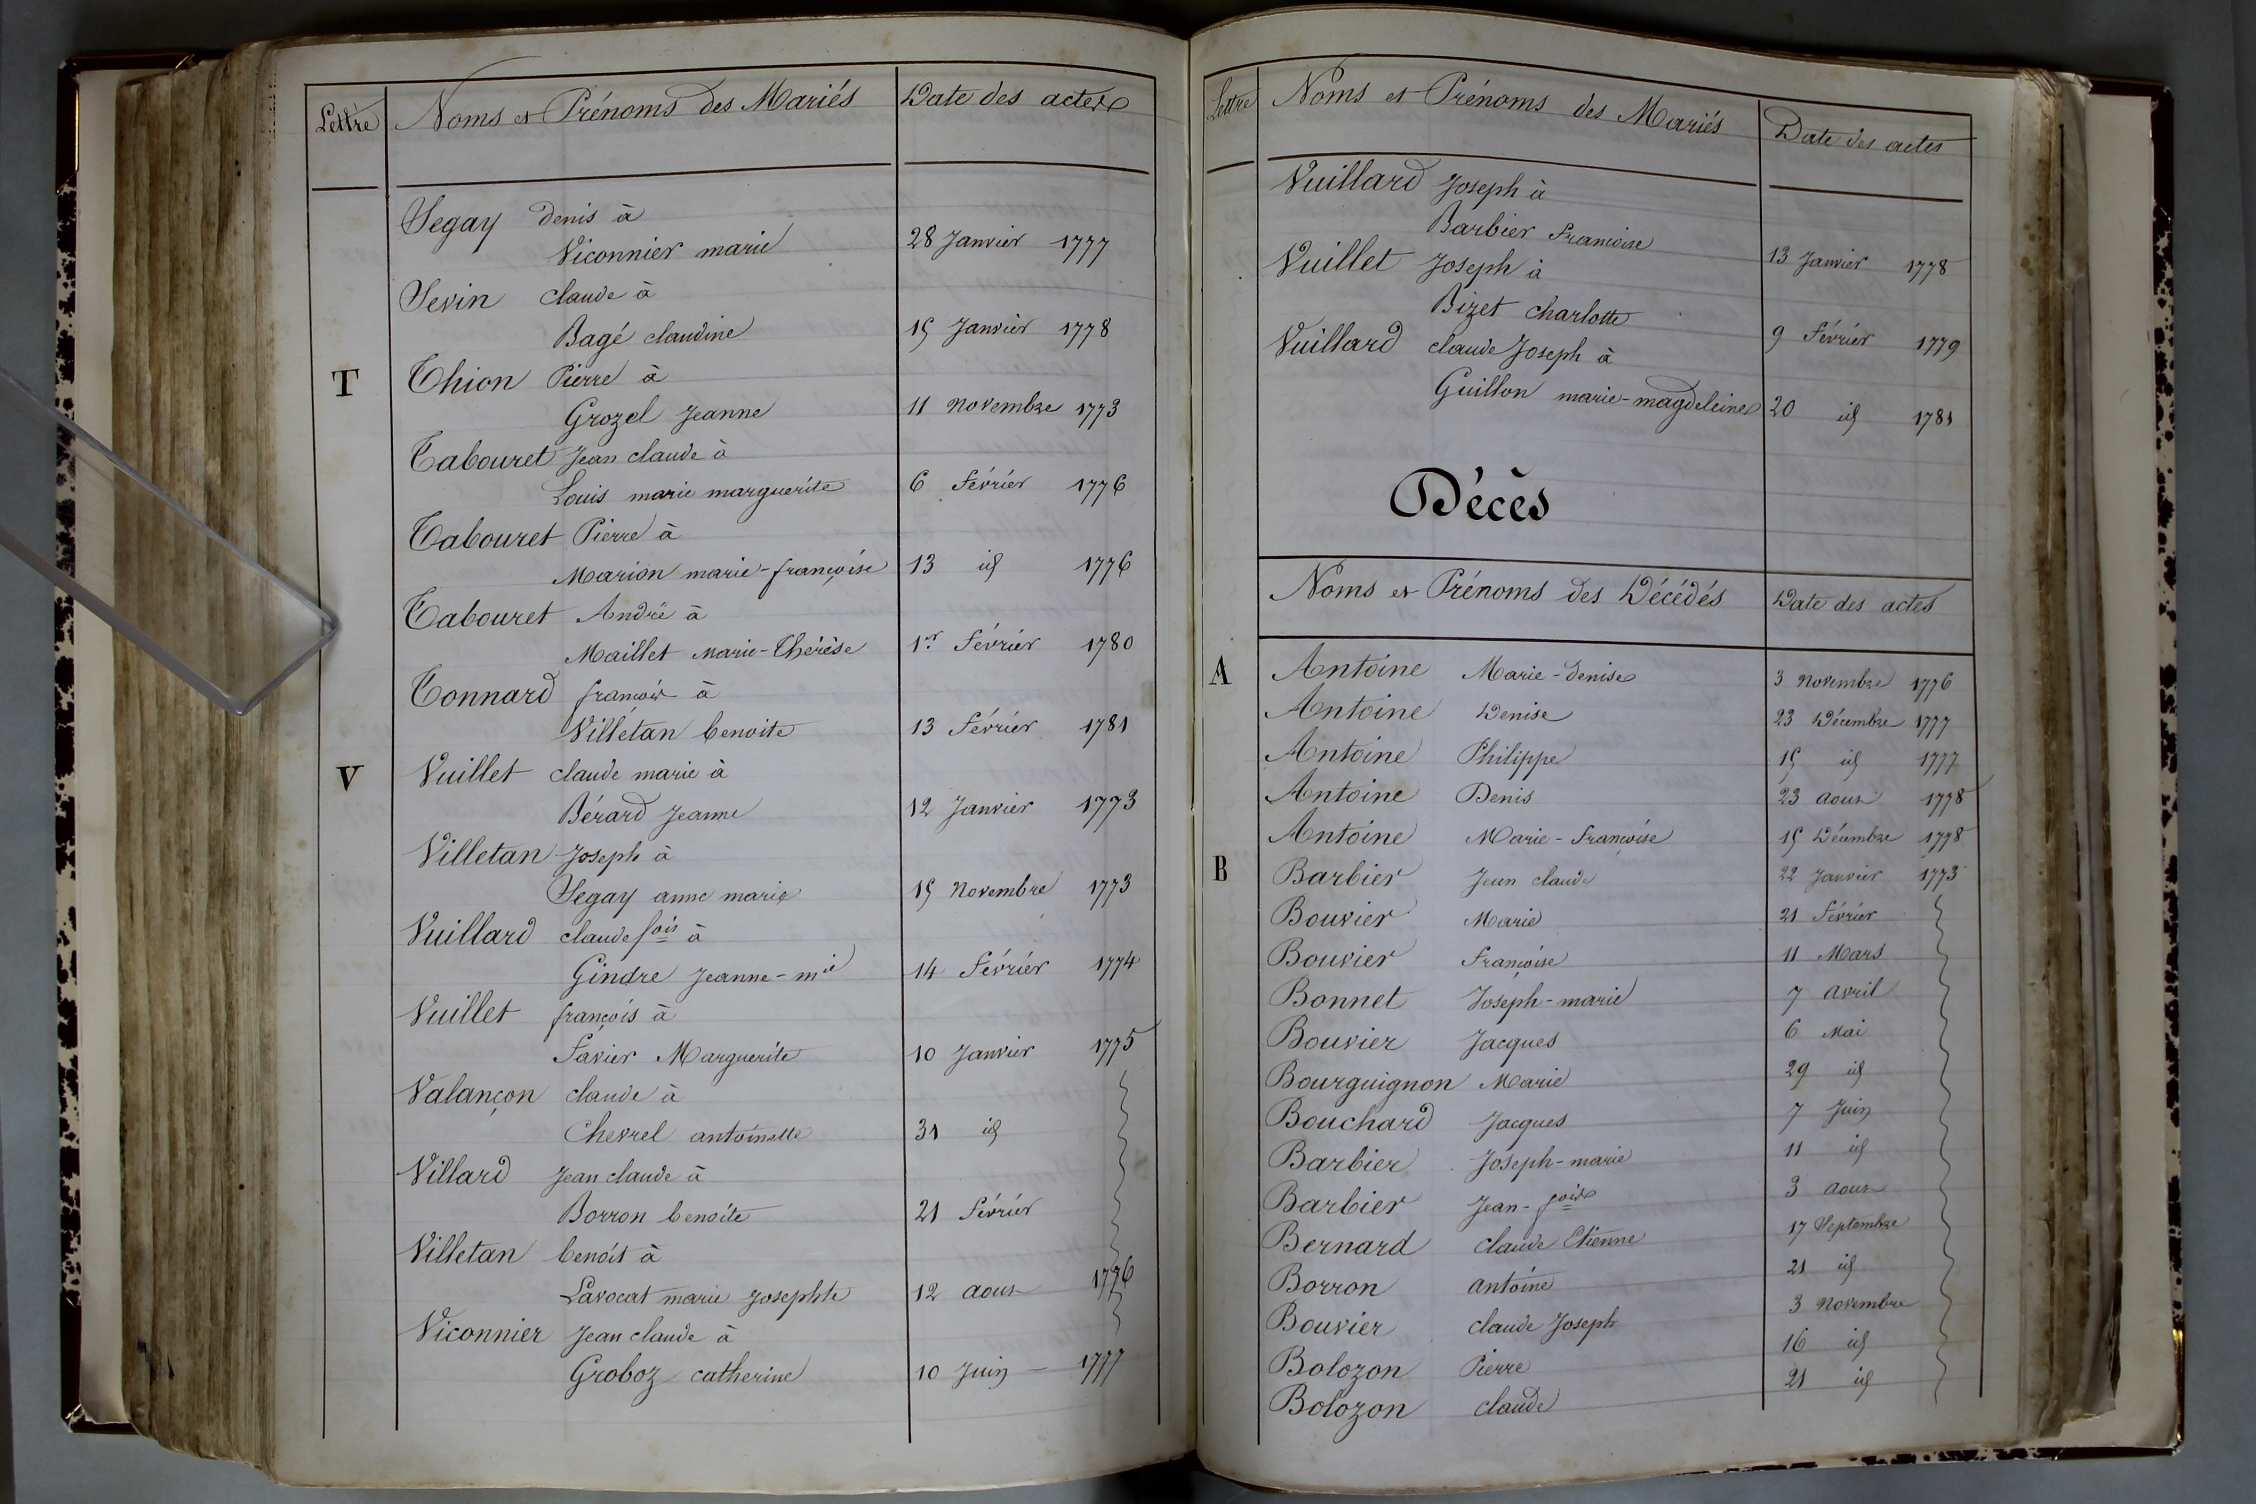 Lettre Noms et Prénoms des Mariés Date des actes
Segay denis à
Viconnier marie 28 Janvier 1777
Sevin claude à
Bagé claudine 15 Janvier 1778
T Thion Pierre à
Grozel Jeanne 11 novembre 1773
Tabouret Jean claude à
Louis marie marguerite 6 Février 1776
Tabouret Pierre à
Marion marie-françoise 13 id 1776
Tabouret André à
Maillet Marie-Thérèse 1er Février 1780
Tonnard françois à
Villetan benoite 13 Février 1781
V Vuillet claude marie à
Bérard Jeanne 12 Janvier 1773
Villetan Joseph à
Segay anne marie 15 Novembre 1773
Vuillard claude fois à
Gindre Jeanne-mie 14 Février 1774
Vuillet françois à
Favier Marguerite 10 Janvier 1775
Valançon claude à
Chevrel antoinette 31 id
Villard Jean claude à
Borron benoite 21 Février
Villetan benoit à
Lavocat marie Josephte 12 aout 1776
Viconnier Jean claude à
Groboz catherine 10 Juin 1777
Lettre Noms et Prénoms des Mariés Date des actes
Vuillard Joseph à
Barbier francoise 13 Janvier 1778
Vuillet Joseph à
Bizet charlotte 9 Février 1779
Vuillard claude Joseph à
Guillon marie-magdeleine 20 id 1781
Décès
Noms et Prénoms des Décédés Date des actes
A Antoine Marie-denise 3 novembre 1776
Antoine Denise 23 Décembre 1777
Antoine Philippe 15 id 1777
Antoine Denis 23 aout 1778
Antoine Marie-françoise 15 Décembre 1778
B Barbier Jean claude 22 Janvier 1773
Bouvier Marie 21 Février
Bouvier Françoise 11 Mars
Bonnet Joseph-marie 7 avril
Bouvier Jacques 6 Mai
Bourguignon Marie 29 id
Bouchard Jacques 7 Juin
Barbier Joseph-marie 11 id
Barbier Jean-fois 3 aout
Bernard claude Etienne 17 Septembre
Borron antoine 21 id
Bouvier claude Joseph 3 Novembre
Bolozon Pierre 16 id
Bolozon claude 21 id